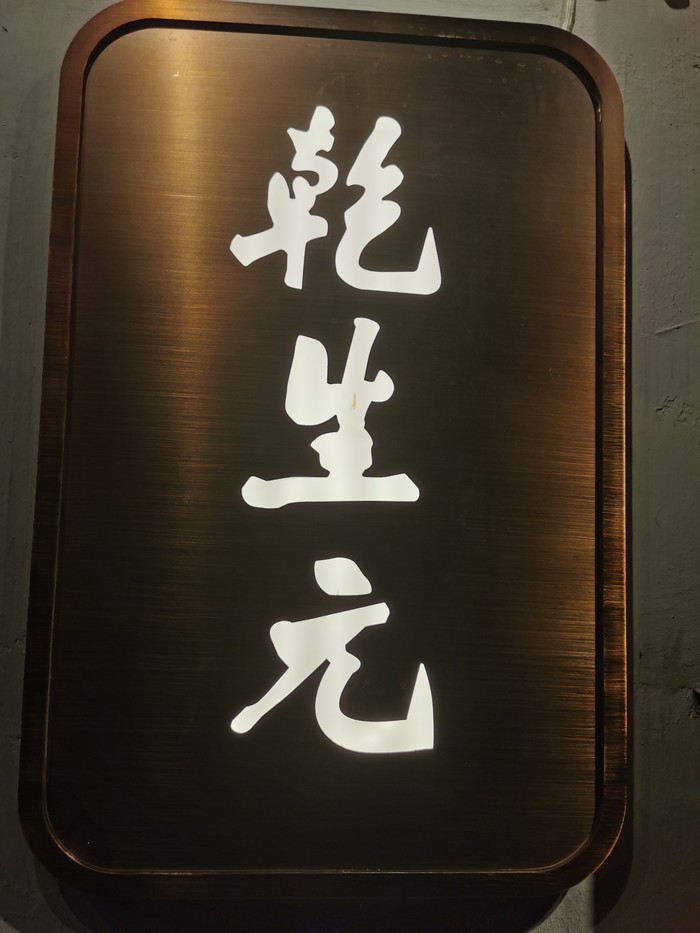 乾生元